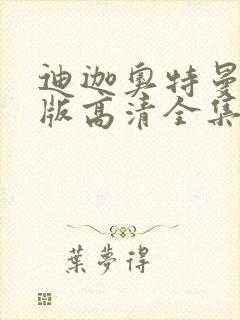 迪迦奥特曼
版高清全集
葉夢得